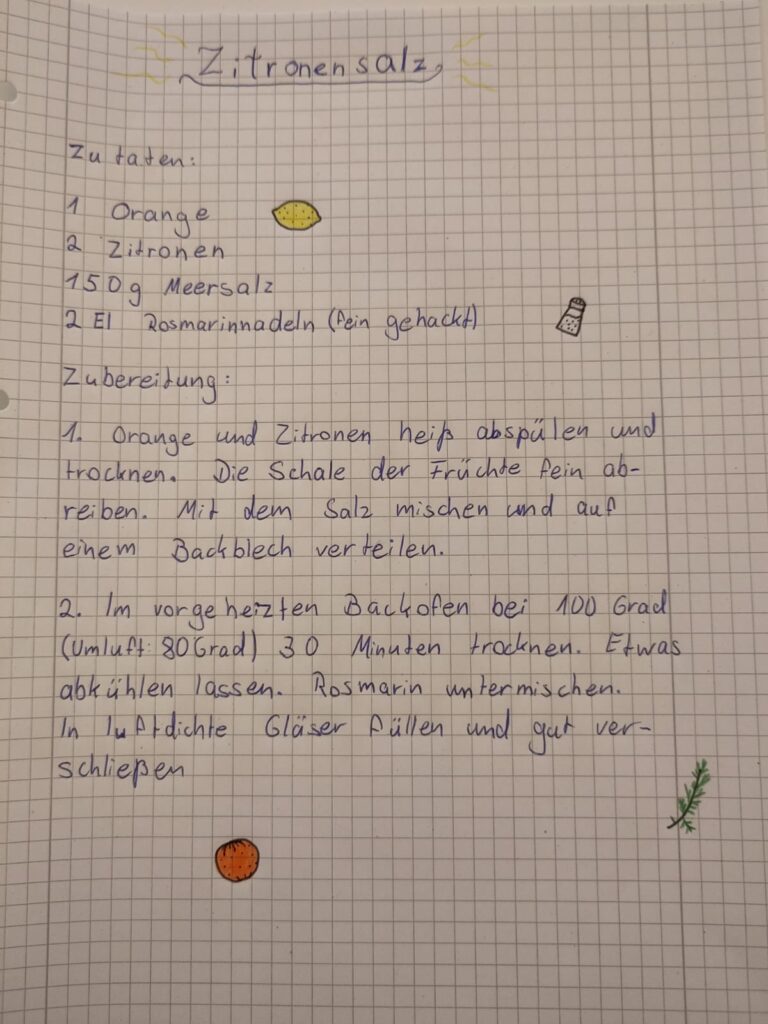 Zitronensalz
Zutaten:
1 Orange
2 Zitronen
150g Meersalz
2 El Rosmarinnadeln (fein gehackt)
Zubereitung:
1. Orange und Zitronen heiß abspülen und
trocknen. Die Schale der Früchte fein ab-
reiben. Mit dem Salz mischen und auf
einem Backblech verteilen.
2. Im vorgeheizten Backofen bei 100 Grad
(Umluft: 80 Grad) 30 Minuten trocknen. Etwas
abkühlen lassen. Rosmarin untermischen.
In luftdichte Gläser füllen und gut ver-
schließen